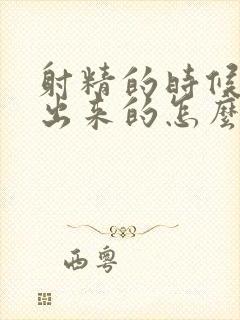 射精的时候
出来的怎麼
西粤